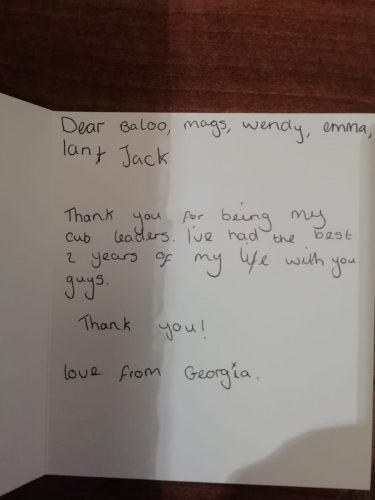 Dear Baloo, mags, wendy, emma,
Ian + Jack
Thank you for being my
cub leaders. I've had the best
2 years of my life with you
guys.
Thank you!
love from Georgia.